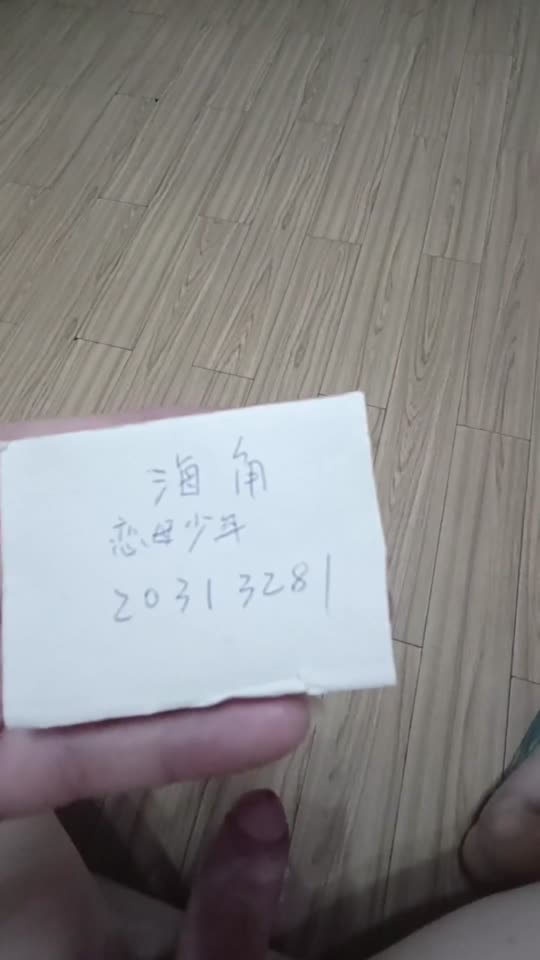 海角
恋母少年
20313281